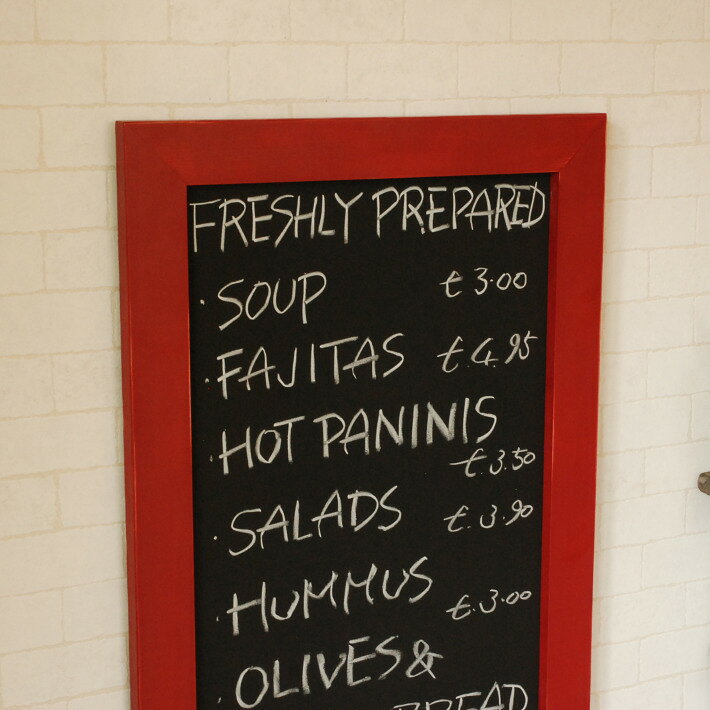 FRESHLY PREPARED
· SOUP £3.00
· FAJITAS £4.95
· HOT PANINIS
£3.50
· SALADS £3.90
· HUMMUS £3.00
· OLIVES &
BREAD